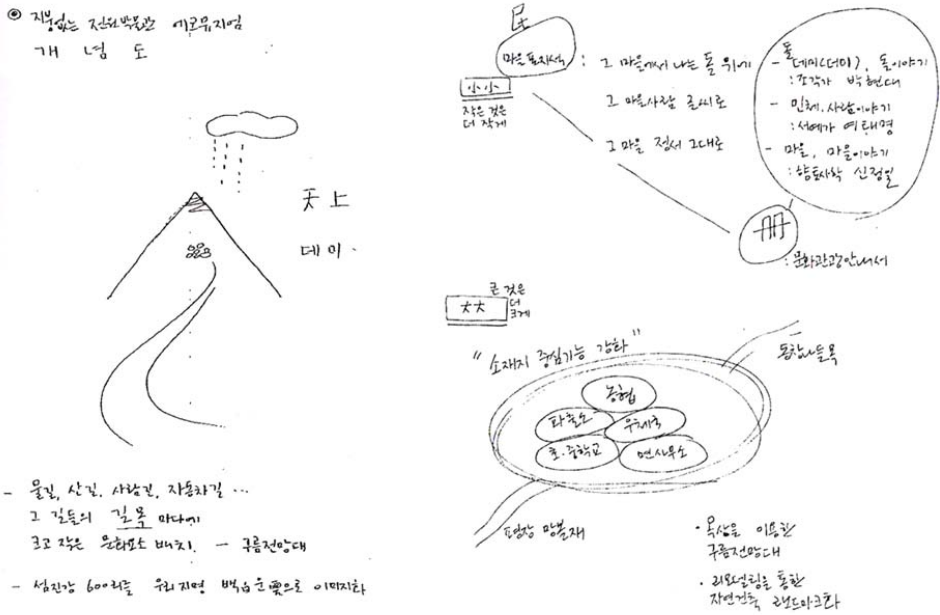 ◎ 지붕없는 전원박물관 에코뮤지엄
개념도
天上
데미
- 물길, 산길, 사람길, 자동차길 ...
그 길들의 길목 마다에
크고 작은 문화요소 배치. - 구름전망대
- 섬진강 600리를 우리지명 백운으로 이미지화
民
마을표지석 : 그 마을에서 나는 돌 위에
그 마을사람 글씨로
그 마을 정서 그대로
小小
작은 것은
더 작게
- 돌데미(더미), 돌이야기
: 조각가 박현대
- 민체, 사람이야기
: 서예가 여태명
- 마을, 마을이야기
: 향토사학 신정일
: 문화관광안내서
大大
큰 것은
더
크게
"소재지 중심기능 강화"
농협
파출소
우체국
초·중학교
면사무소
· 옥상을 이용한
구름전망대
· 리모델링을 통한
자연건축 랜드마크화